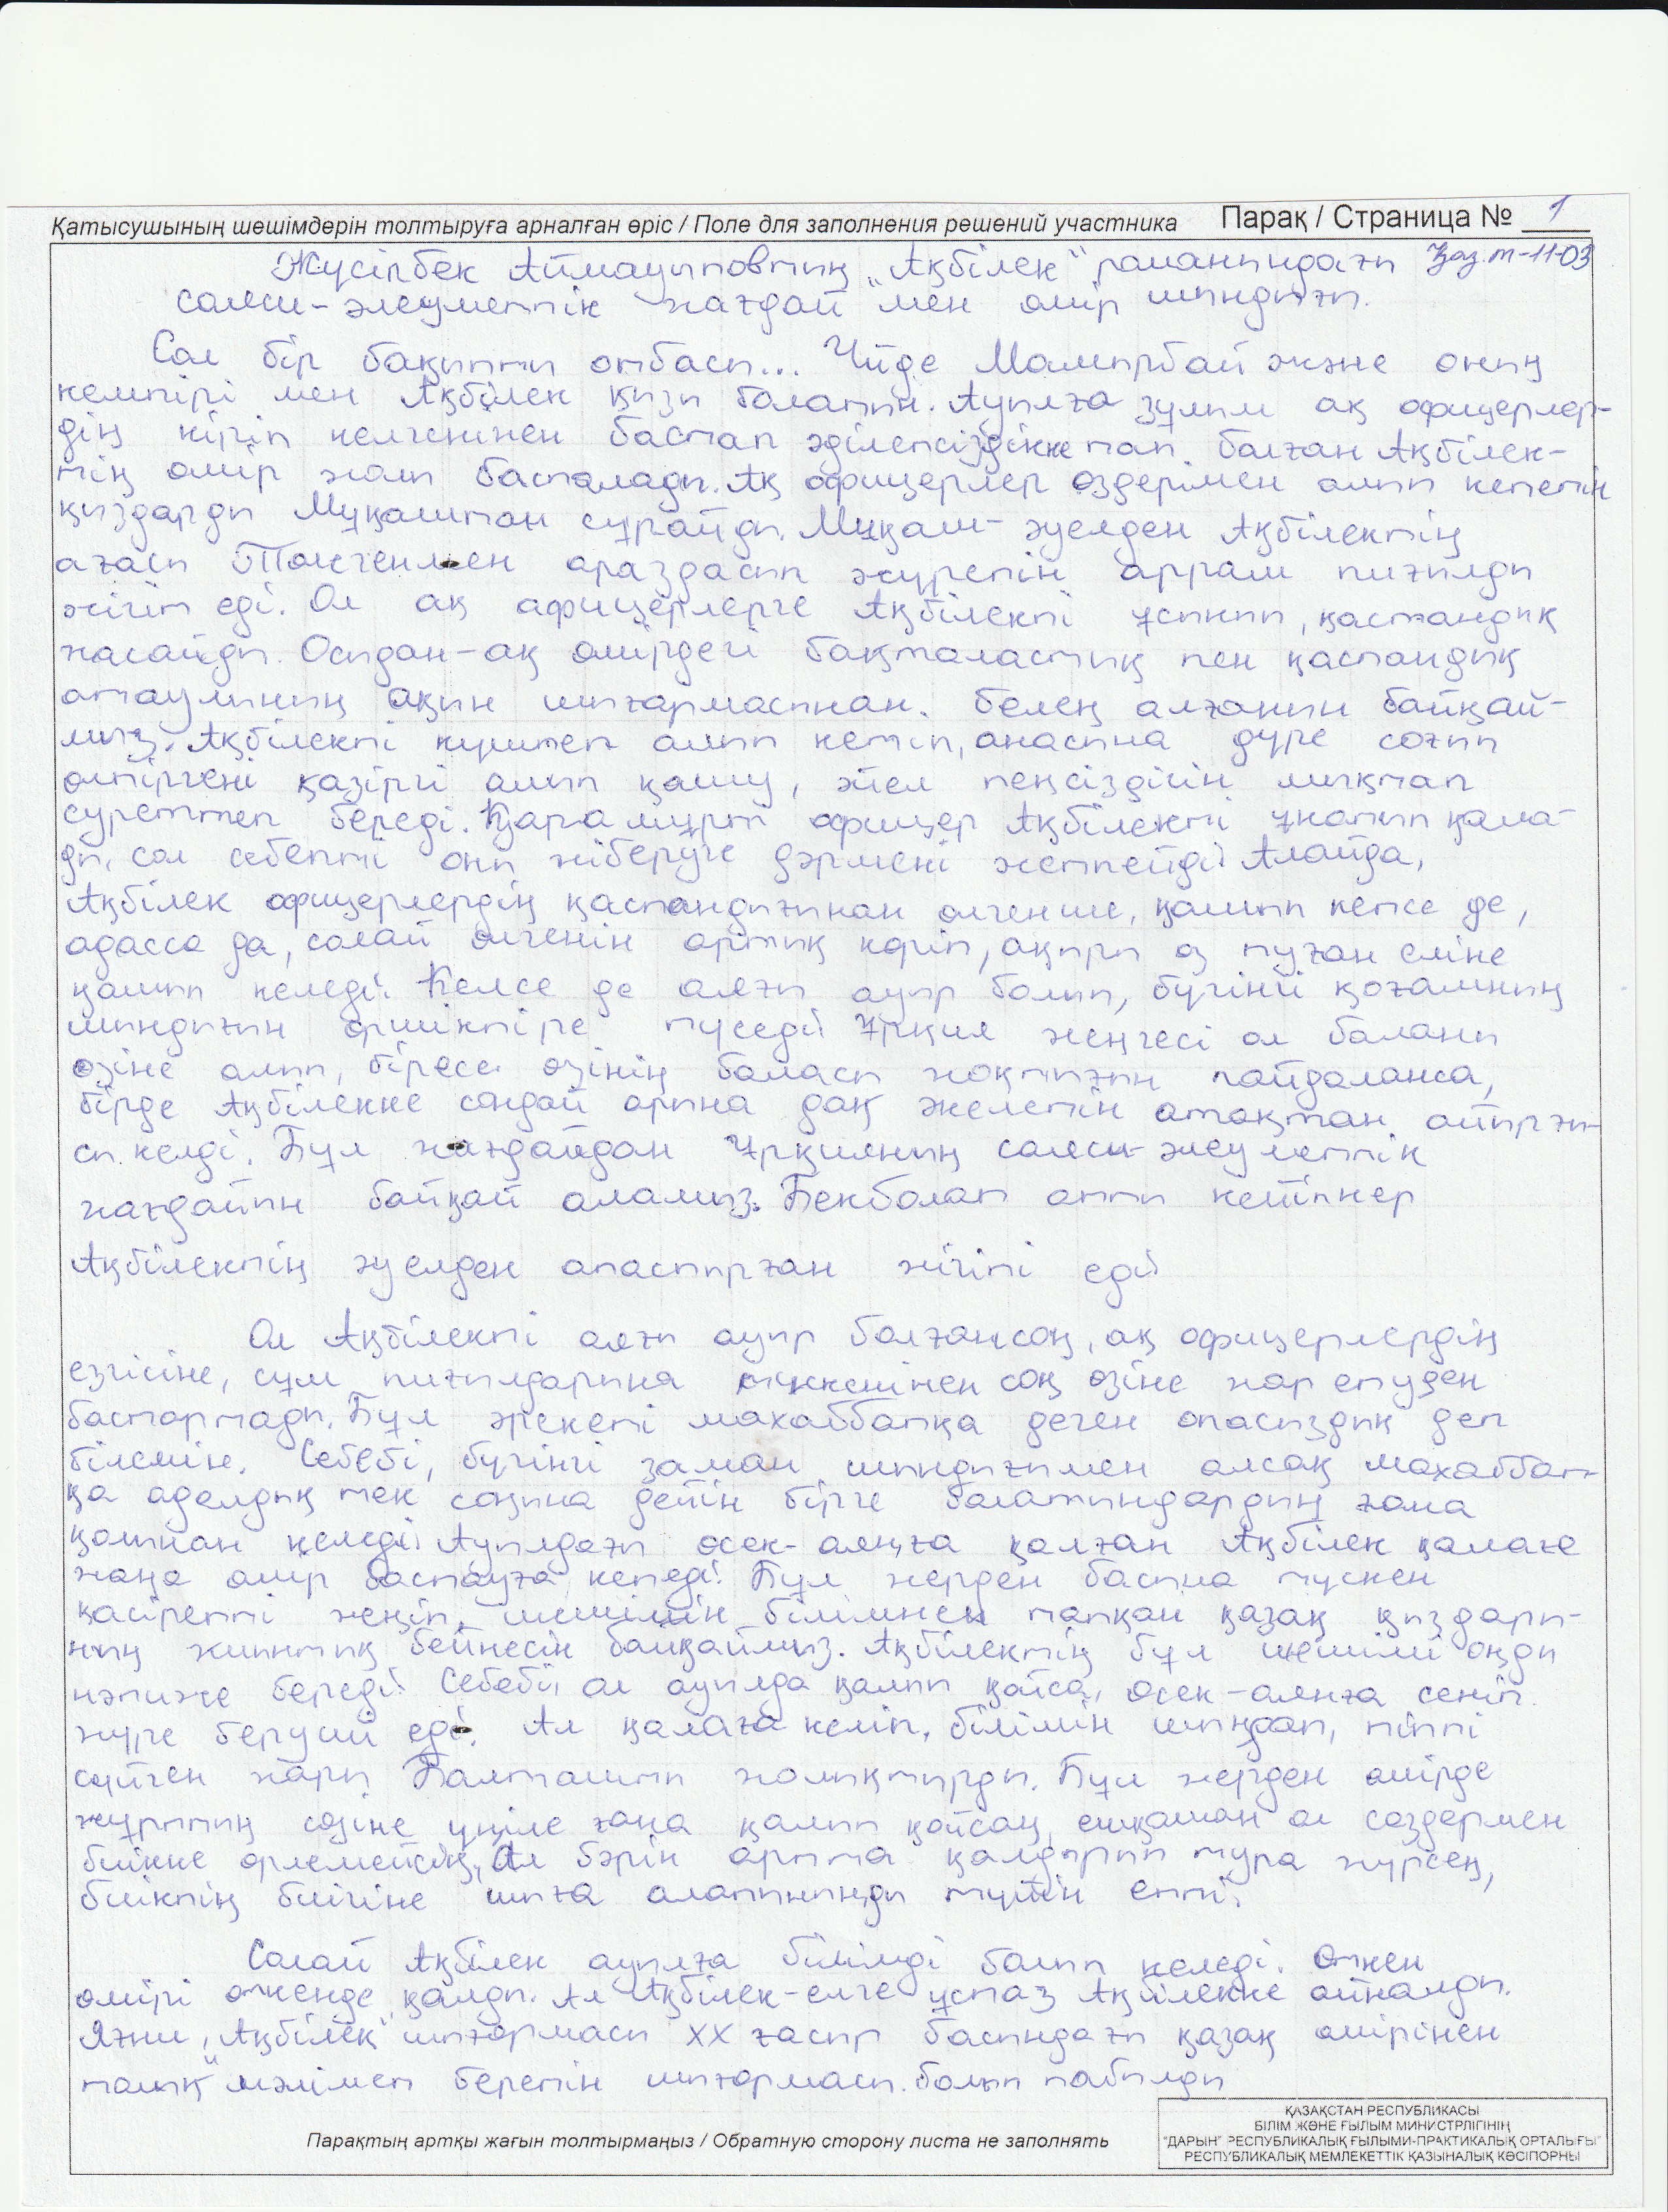 Қатысушының шешімдерін толтыруға арналған өріс / Поле для заполнения решений участника Парақ / Страница № 1
Жүсіпбек Аймауытовтың „Ақбілек" романындағы Қаз.т-11-03
саяси-әлеуметтік жағдай мен өмір шындығы.
Сол бір бақытты отбасы... Үйде Мамырбай және оның
кемпірі мен Ақбілек қызы болатын. Ауылға зұлым ақ офицерлер-
дің кіріп келгенінен бастап әділетсіздікке тап болған Ақбілек-
тің өмір жолы басталады. Ақ офицерлер өздерімен алып кететін
қыздарды Мұқаштан сұрайды. Мұқаш- әуелден Ақбілектің
ағасы Төлегенмен араздасып жүретін арам пиғылды
жігіт еді. Ол ақ офицерлерге Ақбілекті ұсынып, қастандық
жасайды. Осыдан-ақ өмірдегі бақталастық пен қастандық
атаулының ақын шығармасынан белең алғанын байқай-
мыз. Ақбілекті күштеп алып кетіп, анасына дүре соғып
өлтіргені қазіргі алып қашу, әйел теңсіздігін мықтап
суреттеп береді. Қара мұрт офицер Ақбілекті ұнатып қала-
ды, сол себепті оны жіберуге дәрмені жетпейді. Алайда,
Ақбілек офицерлердің қастандығынан өлгенше, қашып кетсе де,
адасса да, солай өлгенін артық көріп, ақыры өз туған еліне
қашып келеді. Келсе де аяғы ауыр болып, бүгінгі қоғамның
шындығын өршіктіре түседі. Ұрқия жеңгесі ол баланы
өзіне алып, біресе өзінің баласы жоқтығын пайдаланса,
бірде Ақбілекке сондай арына дақ әкелетін атақтан айырғы-
сы келді. Бұл жағдайдан Ұрқияның саяси-әлеуметтік
жағдайын байқай аламыз. Бекболат атты кейіпкер
Ақбілектің әуелден атастырған жігіті еді.
Ол Ақбілекті аяғы ауыр болғансоң, ақ офицерлердің
езгісіне, сұм пиғылдарына түскенінен соң өзіне жар етуден
бастартады. Бұл әрекеті махаббатқа деген опасыздық деп
білемін. Себебі, бүгінгі заман шындығымен алсақ махаббат-
қа адалдық тек соңына дейін бірге болатындардың ғана
қолынан келеді. Ауылдағы өсек-аяңға қалған Ақбілек қалаға
жаңа өмір бастауға кетеді. Бұл жерден басына түскен
қасіретті жеңіп, шешімін білімнен тапқан қазақ қыздары-
ның жиынтық бейнесін байқаймыз. Ақбілектің бұл шешімі оңды
нәтиже береді. Себебі, ол ауылда қалып қойса, өсек-аяңға сеніп
жүре беруші еді. Ал қалаға келіп, білімін шыңдап, тіпті
сүйген жары Балташты жолықтырды. Бұл жерден өмірде
жұрттың сөзіне үңіле ғана қалып қойсаң, ешқашан ол сөздермен
биікке өрлемейсің, Ал бәрін артта қалдырып тұра жүрсең,
биіктің биігіне шыға алатынынды түйін етті.
Солай Ақбілек ауылға білімді болып келеді. Өткен
өмірі өткенде қалды. Ал Ақбілек-елге ұстаз Ақбілекке айналды.
Яғни, „Ақбілек" шығармасы XX ғасыр басындағы қазақ өмірінен
толық мәлімет беретін шығармасы болып табылды
Парақтың артқы жағын толтырмаңыз / Обратную сторону листа не заполнять
ҚАЗАҚСТАН РЕСПУБЛИКАСЫ
БІЛІМ ЖӘНЕ ҒЫЛЫМ МИНИСТРЛІГІНІҢ
"ДАРЫН" РЕСПУБЛИКАЛЫҚ ҒЫЛЫМИ-ПРАКТИКАЛЫҚ ОРТАЛЫҒЫ"
РЕСПУБЛИКАЛЫҚ МЕМЛЕКЕТТІК ҚАЗЫНАЛЫҚ КӘСІПОРНЫ